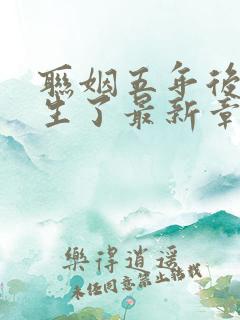 聯姻五年後
生了最新章
樂得逍遥
未经同意禁止转载